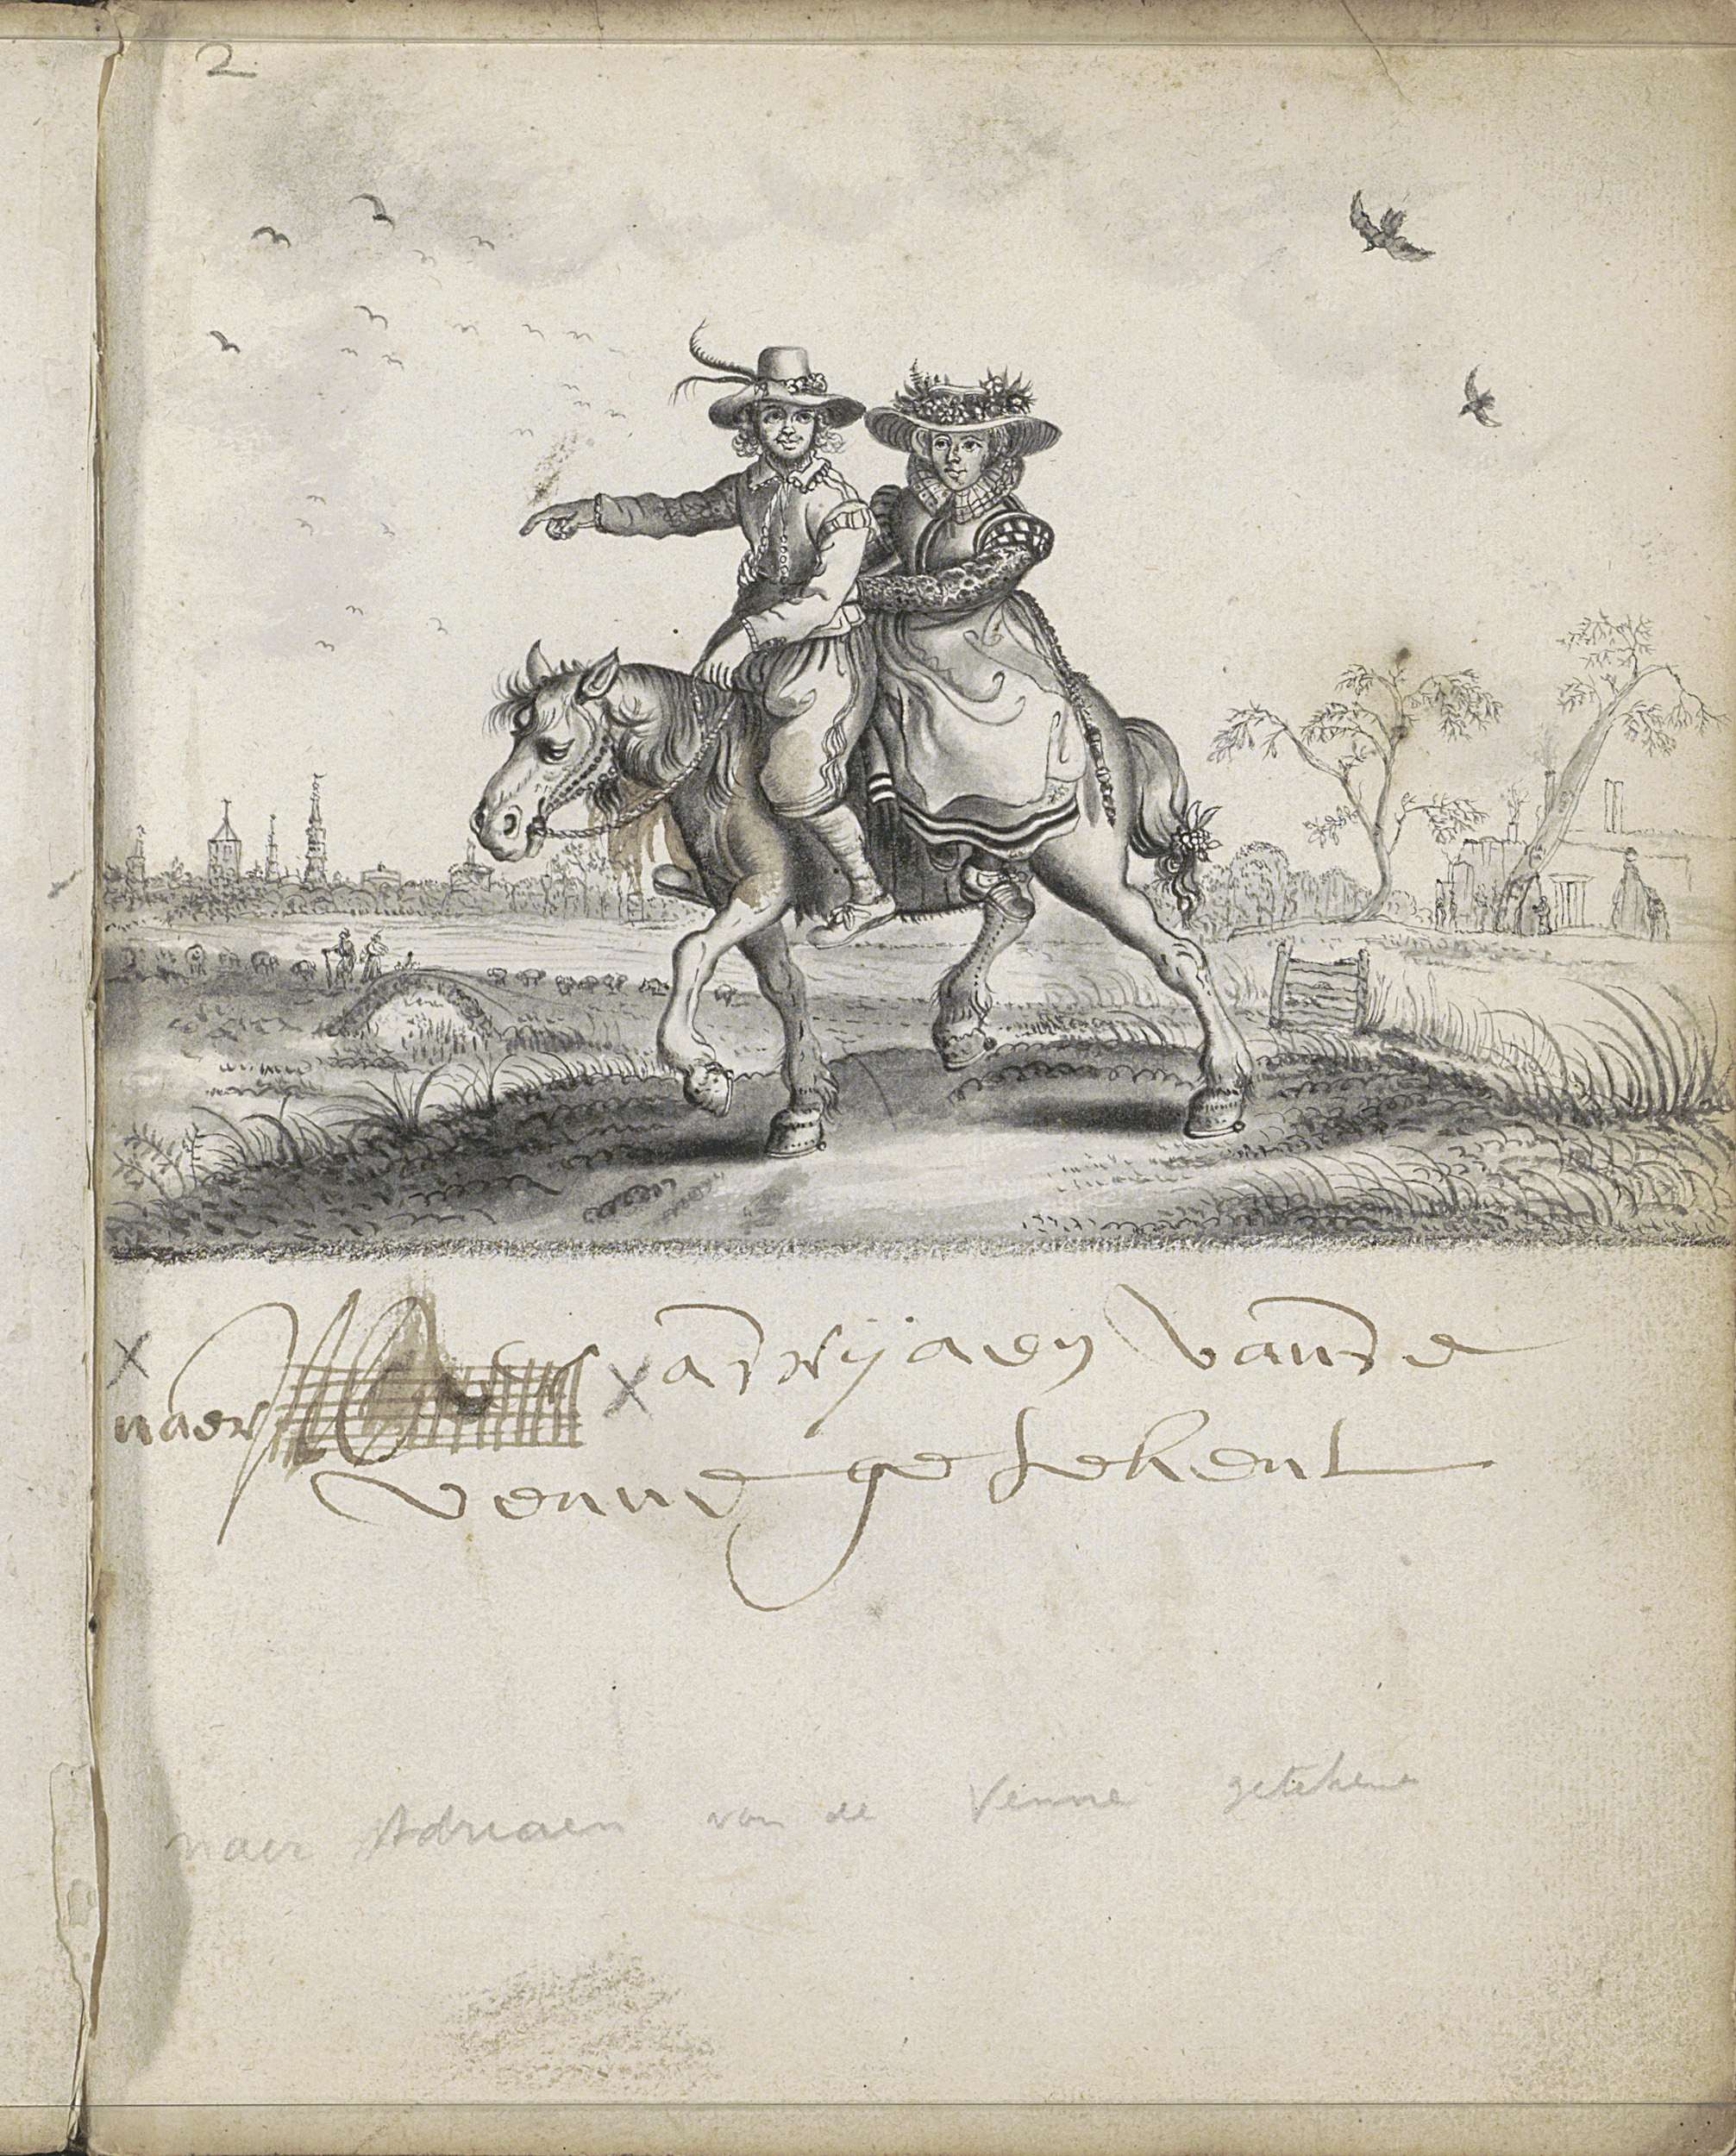 2
naer adrijaen vande
venne getekent
naer Adriaen van de Venne getekend